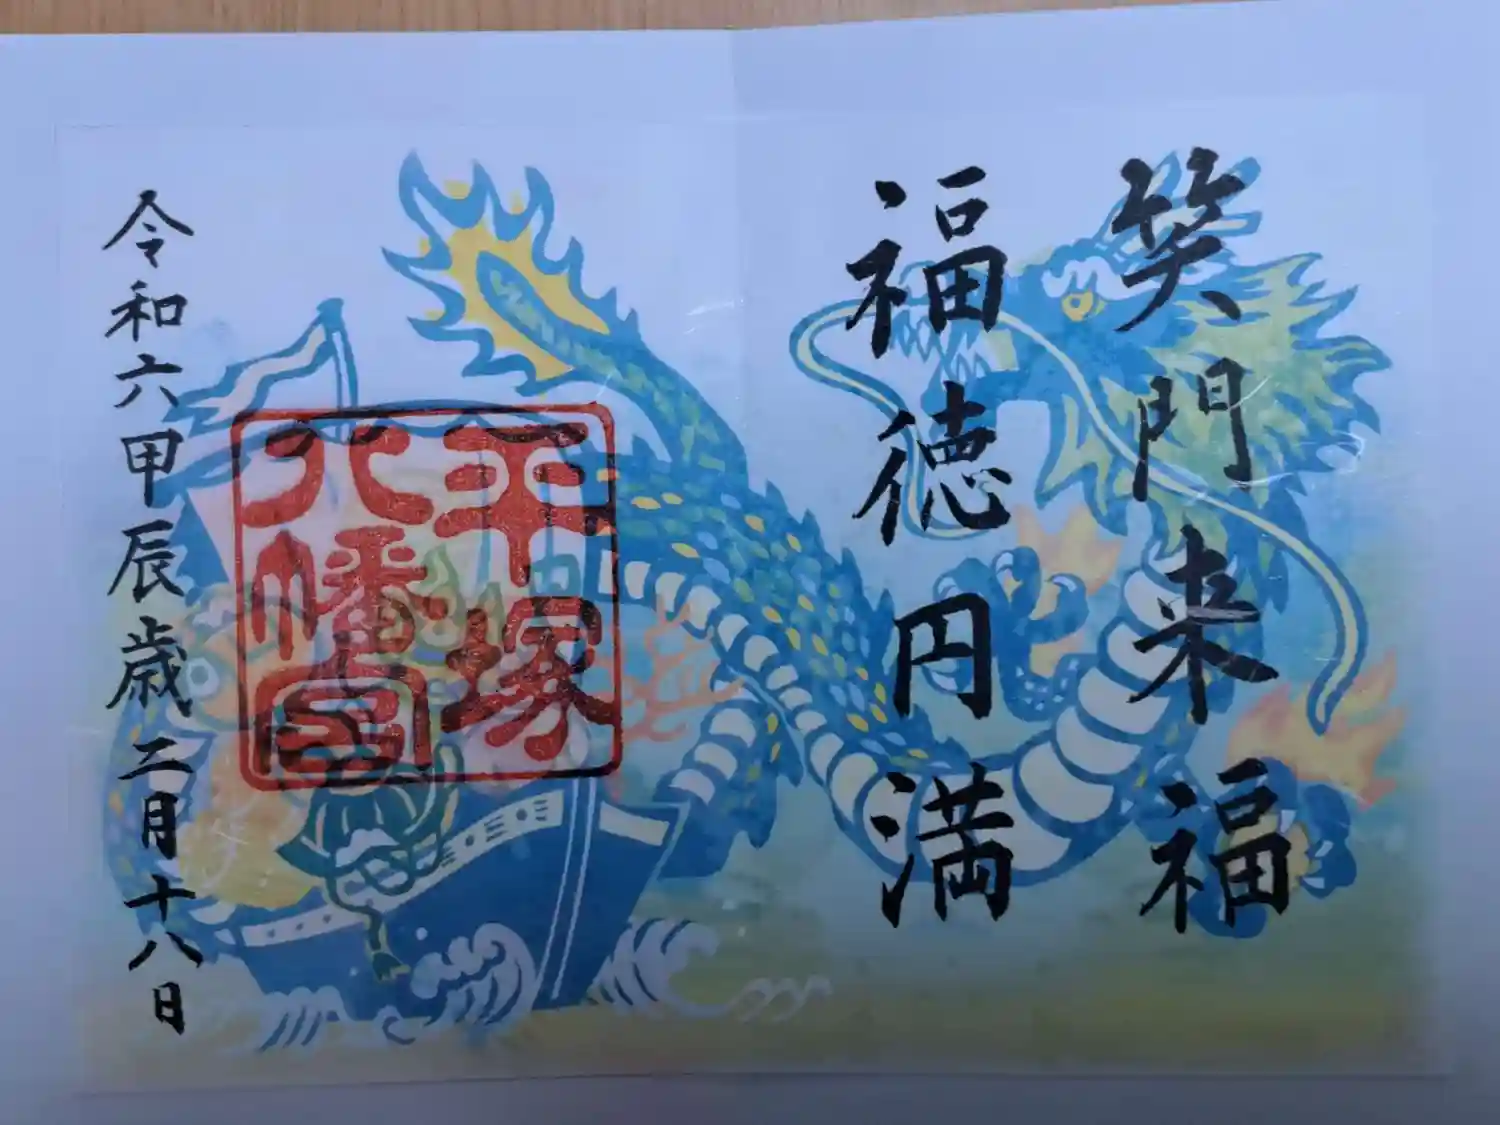 笑門来福
福徳円満
平塚
八幡宮
令和六甲辰歳二月十八日